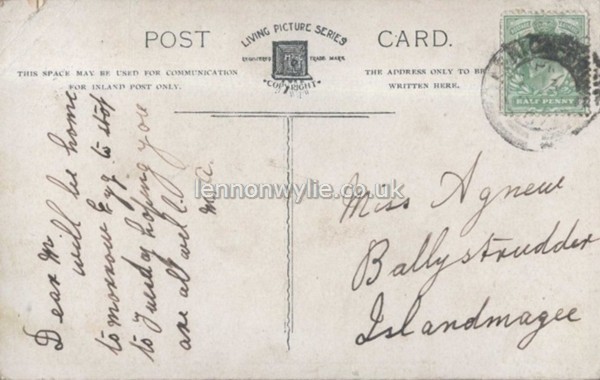 POST CARD.
LIVING PICTURE SERIES
TRADE MARK.
COPYRIGHT
THIS SPACE MAY BE USED FOR COMMUNICATION
FOR INLAND POST ONLY.
THE ADDRESS ONLY TO BE
WRITTEN HERE.
HALF PENNY
Dear M
will be home
to morrow to stop
to Tuesday hoping you
are all well
lennonwylie.co.uk
Miss Agnew
Ballystrudder
Islandmagee